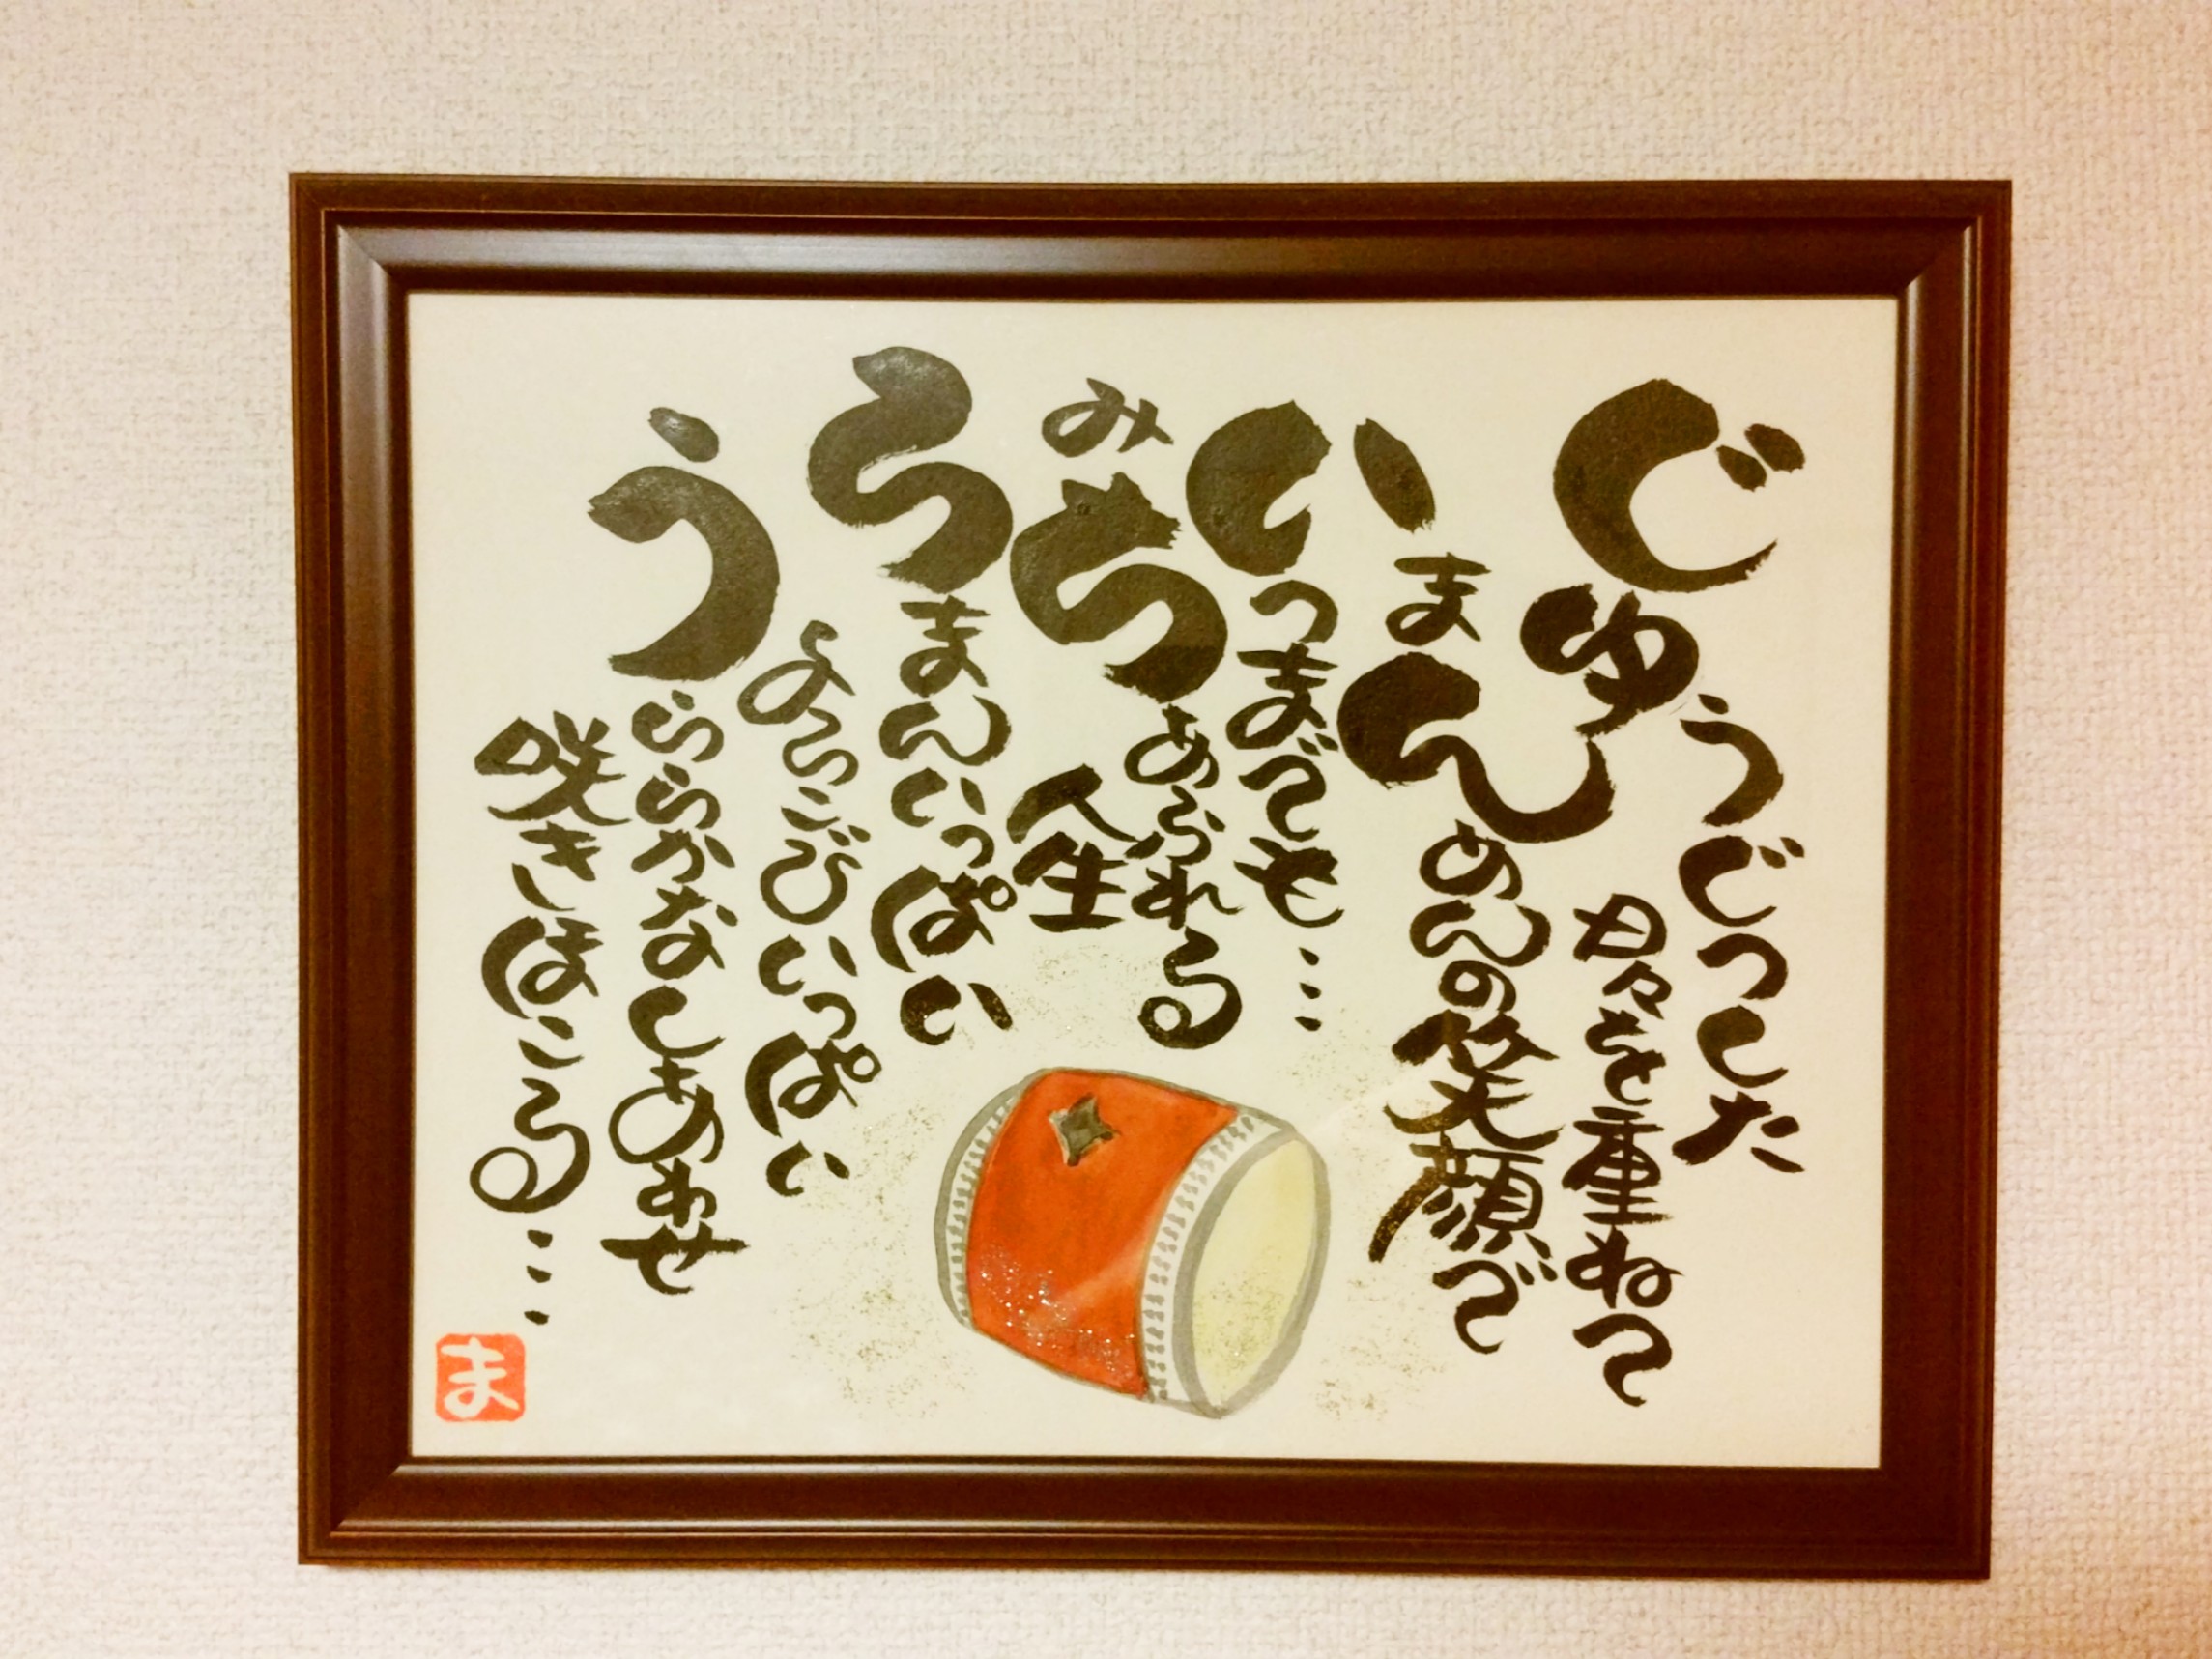 じゅうじつした
日々を重ねて
まんめんの笑顔で
いつまでも…
みちあふれる
人生
ろまんいっぱい
よろこびいっぱい
うららかなしあわせ
咲きほこる…
ま